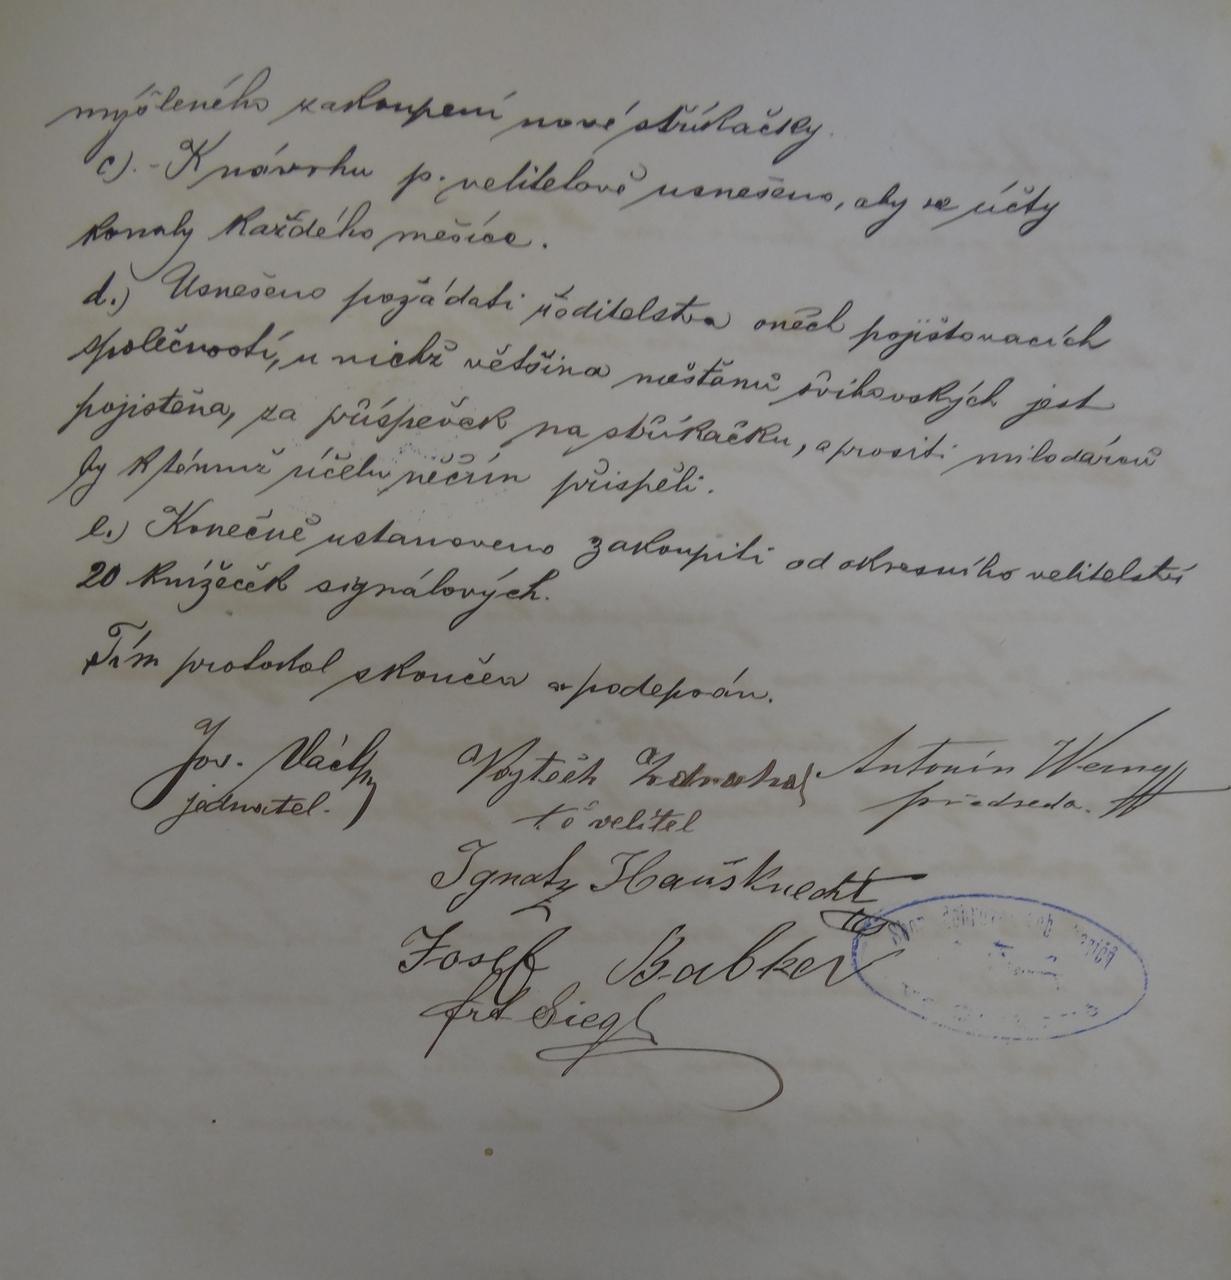 myšleného zakoupení nové stříkačky.
c). - K návrhu p. velitelově usnešeno, aby se účty
konaly každého měsíce.
d.) Usnešeno požádati ředitelstva oněch pojišťovacích
společností, u nichž většina měšťanů švihovských jest
pojistěna, za příspěvek na stříkačku, a prositi milodárců
by k témuž účelu něčím přispěli.
e.) Konečně ustanoveno zakoupiti od okresního velitelství
20 knížeček signálových.
Tím protokol skončen a podepsán.
Jos. Václ
jednatel.
Vojtěch
velitel
Antonín Werny
předseda.
Ignatz Hausknecht
Josef Babka
Frt Siegl
Sbor dobrovol. hasičů